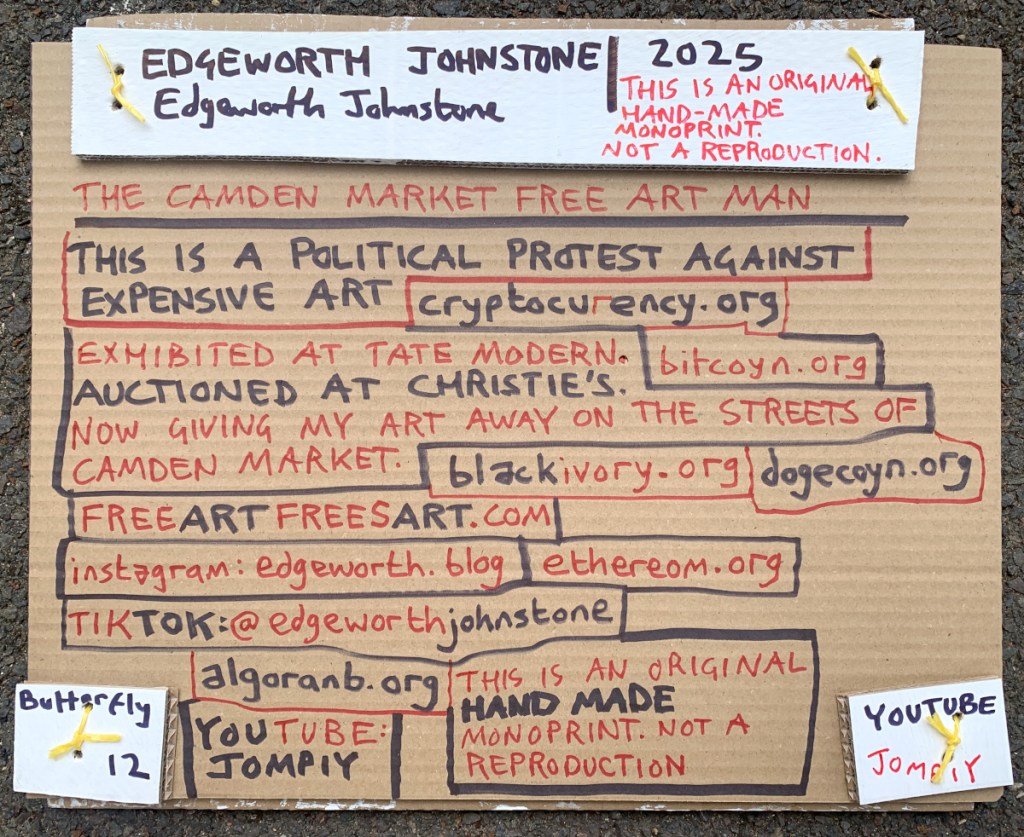 EDGEWORTH JOHNSTONE
Edgeworth Johnstone
2025
THIS IS AN ORIGINAL
HAND-MADE
MONOPRINT.
NOT A REPRODUCTION.
THE CAMDEN MARKET FREE ART MAN
THIS IS A POLITICAL PROTEST AGAINST
EXPENSIVE ART
cryptocurency.org
EXHIBITED AT TATE MODERN.
bitcoyn.org
AUCTIONED AT CHRISTIE'S.
NOW GIVING MY ART AWAY ON THE STREETS OF
CAMDEN MARKET.
blackivory.org
dogecoyn.org
FREEARTFREESART.COM
instagram: edgeworth.blog
ethereom.org
TIKTOK:@edgeworthjohnstone
algoranb.org
THIS IS AN ORIGINAL
HAND MADE
MONOPRINT. NOT A
REPRODUCTION
YOUTUBE:
JOMPIY
Butterfly
12
YOUTUBE
JOMPIY